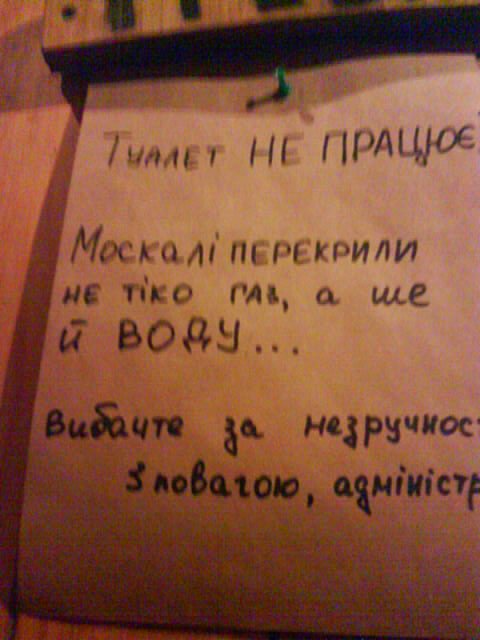 Туалет НЕ ПРАЦЮЄ
Москалі ПЕРЕКРИЛИ
НЕ ТІКО ГАЗ, а ше
Й ВОДУ...
Вибачте за незручност
З повагою, адміністр